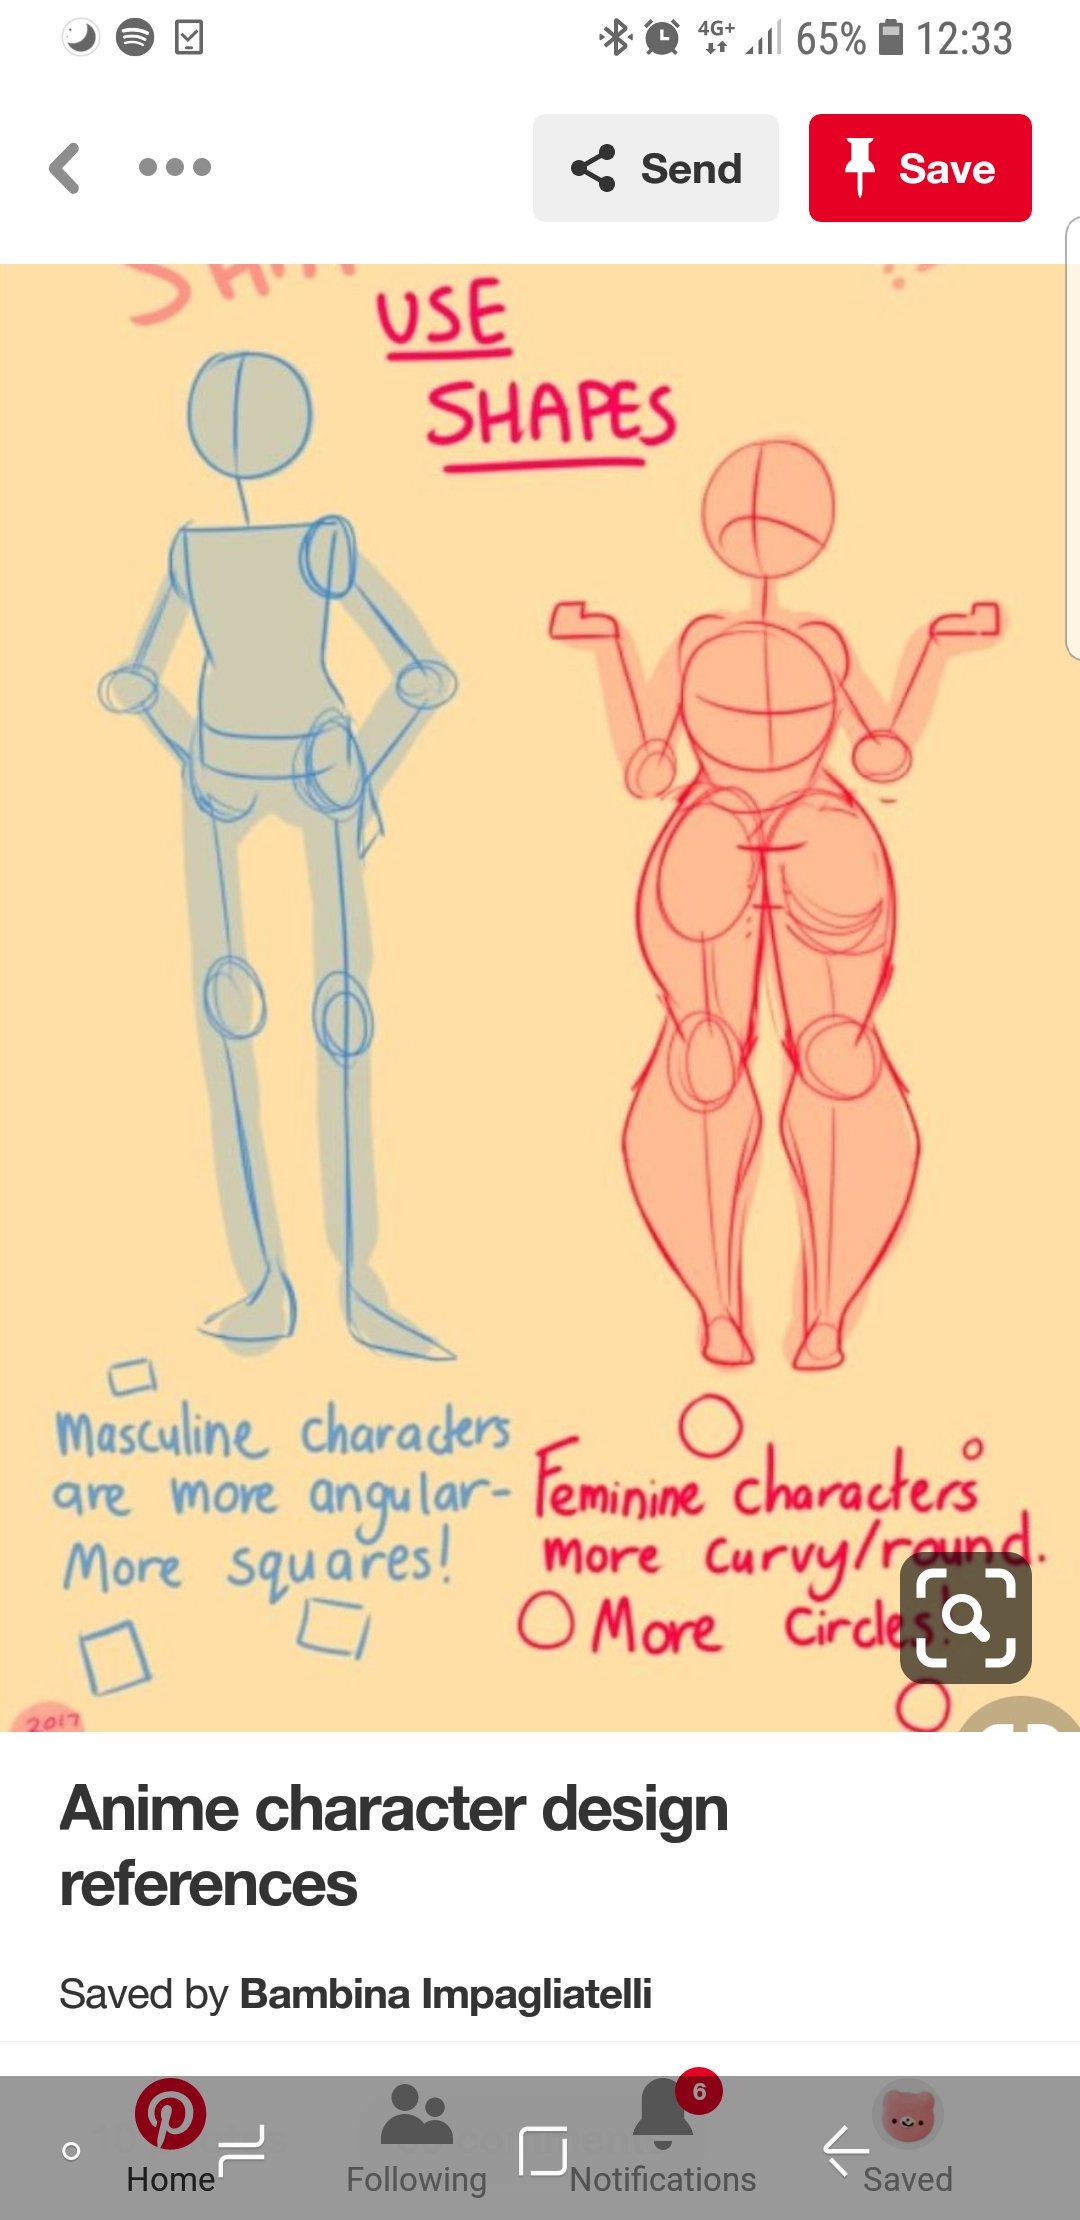 4G+ 65% 12:33
Send Save
USE
SHAPES
Masculine characters
are more angular-
More squares!
Feminine characters
more curvy/round.
More Circles!
2017
Anime character design
references
Saved by Bambina Impagliatelli
6
Home Following Notifications Saved